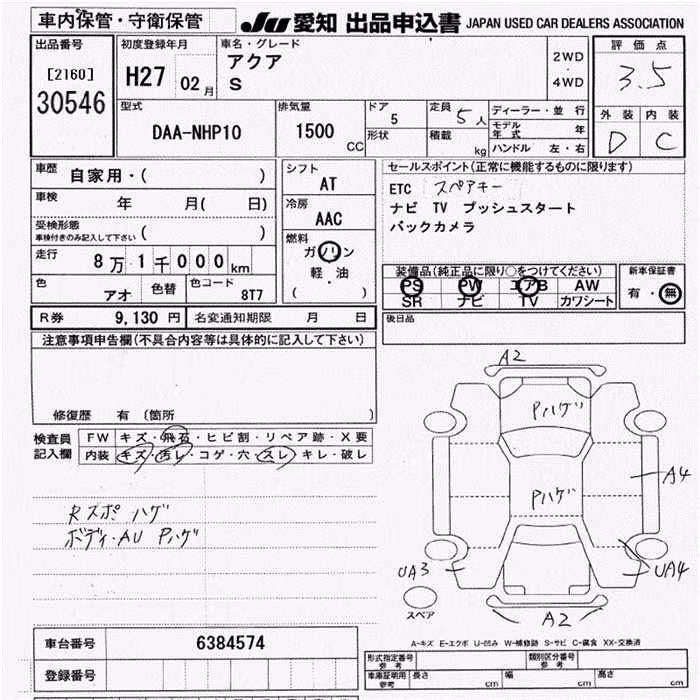 車内保管・守衛保管
JU 愛知 出品申込書 JAPAN USED CAR DEALERS ASSOCIATION
出品番号
[2160]
30546
初度登録年月
H27 02 月
車名・グレード
アクア
S
2WD
・
4WD
評価点
3.5
外装 内装
D C
型式
DAA-NHP10
排気量
1500 CC
ドア
5
形状
定員
5 人
積載
kg
ディーラー・並行
モデル年式 年
ハンドル 左・右
車歴 自家用・( )
車検 年 月( 日)
受検形態
車検付きのみ記入して下さい ( )
走行 8万1千000km
色 アオ 色替 色コード 8T7
シフト
AT
冷房
AAC
燃料
ガソリン
軽・油
( )
セールスポイント(正常に機能するものに限ります)
ETC スペアキー
ナビ TV プッシュスタート
バックカメラ
装備品(純正品に限り○をつけてください)
PS PW エアB AW
SR ナビ TV カワシート
新車保証書
有・無
R券 9,130 円 名変通知期限 月 日
後日品
注意事項申告欄(不具合内容等は具体的に記入して下さい)
修復歴 有 (箇所 )
検査員記入欄
FW キズ・飛石・ヒビ割・リペア跡・X要
内装 キズ・汚レ・コゲ・穴・スレ・キレ・破レ
Rスポ ハゲ
ボディ・AU Pハゲ
A2
Pハゲ
Pハゲ
A4
UA3
UA4
スペア
A2
A-キズ E-エクボ U-凹み W-補修跡 S-サビ C-腐食 XX-交換済
車台番号 6384574
登録番号
形式指定番号 参考 類別区分番号 参考
車庫証明用 参考 長さ cm 幅 cm 高さ cm